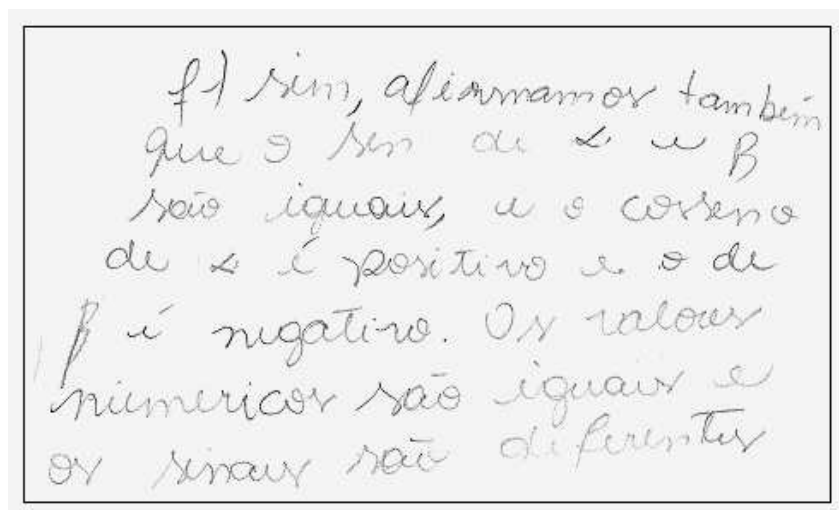 f) sim, afirmamos também
que o sen de α e β
são iguais, e o cosseno
de α é positivo e o de
β é negativo. Os valores
númericos são iguais e
os sinais são diferentes